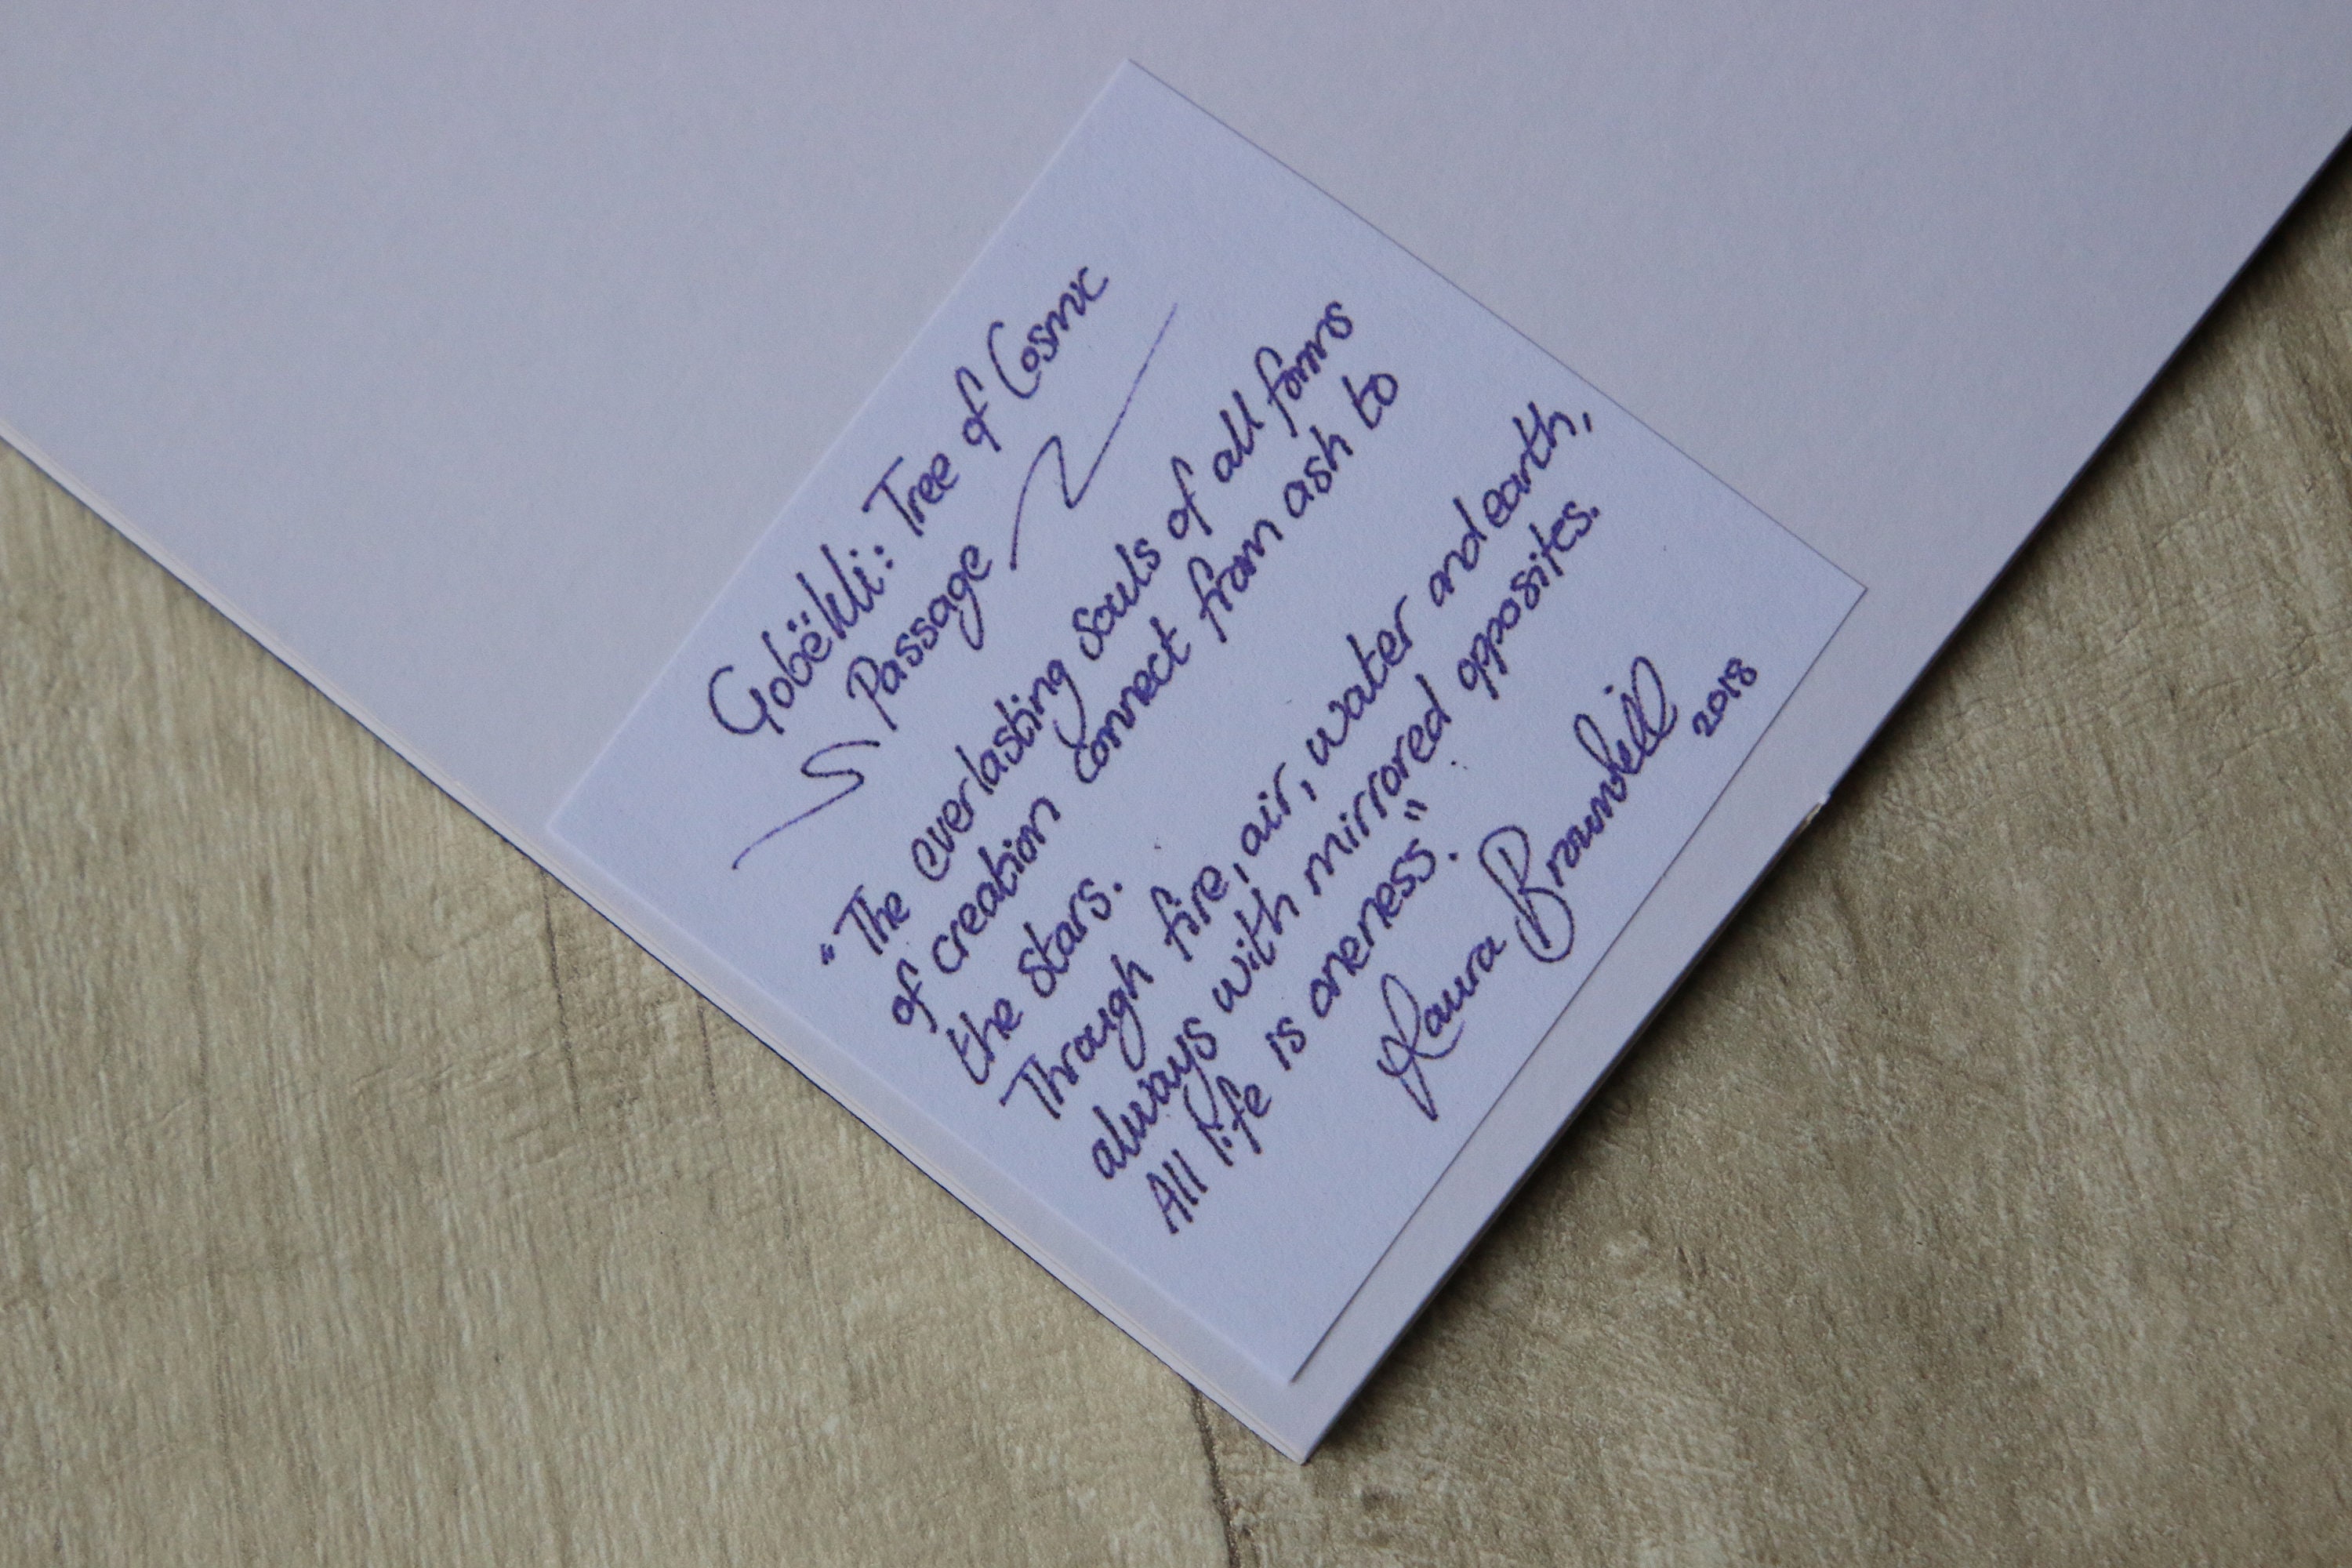 Gobëkli: Tree of Cosmic
Passage
"The everlasting souls of all forms
of creation connect from ash to
the stars.
Through fire, air, water and earth,
always with mirrored opposites.
All life is oneness".
Laura Brownhill
2018